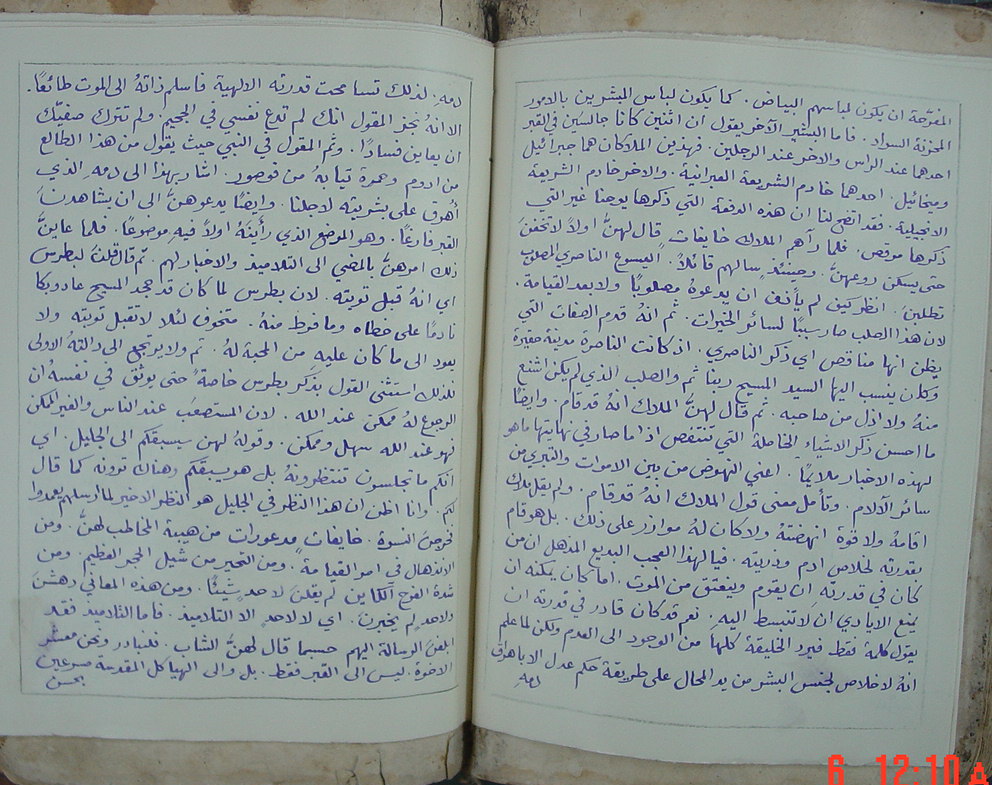 المفرّحة ان يكون لباسهم البياض. كما يكون لباس المبشرين بالامور
المحزنة السواد. فاما البشير الآخر يقول ان اثنين كانا جالسَين في القبر
احدها عند الراس والاخر عند الرجلين. فهذين الملاكان هما جبرائيل
وميخائيل. احدهما خادم الشريعة العبرانية. والاخر خادم الشريعة
الانجيلية. فقد اتضح لنا ان هذه الدفعة التي ذكرها يوحنا غير التي
ذكرها مرقص. فلما رآهم الملاك خايفات قال لهنَّ اولاً لا تخفنَ
حتى يسكن روعهنَّ. وحينئذٍ سالهم قائلاً. اليسوع الناصري المصلوب
تطلبن. انظر كيف لم يأنف ان يدعوهُ مصلوبًا ولا بعد القيامة.
لان هذا الصلب صار سببًا لسائر الخيرات. ثم انهُ قدم الصفات التي
يظن انها مناقص اي ذكر الناصري. اذ كانت الناصرة مدينة حقيرة
وكان ينسب اليها السيد المسيح ربنا ثم والصلب الذي لم يكن اشنع
منهُ ولا اذل من صاحبه. ثم قال لهنَّ الملاك انهُ قد قام. وايضًا
ما احسن ذكر الاشياء الخاملة التي تنتقص اذا ما صار في نهايتها ما هو
لهذه الاخبار ملايمًا. اعني النهوض من بين الاموات والتبري من
سائر الآلام. وتأمل معنى قول الملاك انهُ قد قام. ولم يقل بذلك
اقامهُ ولا قوة انهضتهُ ولا كان لهُ موازر على ذلك. بل هو قام
بقدرته لخلاص ادم وذريته. فيا لهذا العجب البديع المذهل ان من
كان في قدرته ان يقوم وينعتق من الموت. اما كان يمكنه ان
يمنع الايادي ان لا تنبسط اليه. نعم قد كان قادر في قدرته ان
يقول كلمة فقط فيرد الخليقة كلها من الوجود الى العدم ولكن لما علم
انهُ لا خلاص لجنس البشر من يد المحال على طريقة حكم عدل الا باهراق
دمهِ
دمه. لذلك تسامحت قدرته الالهية فاسلم ذاتهُ الى الموت طائعًا.
الا انهُ نجز المقول انك لم تدع نفسي في الجحيم. ولم تترك صفيّك
ان يعاين فسادًا. وتم المقول في النبي حيث يقول من هذا الطالع
من ادوم وحمرة ثيابهُ من فوصور. اشار بهذا الى دمه الذي
أُهرق على بشريته لاجلنا. وايضًا يدعوهنَّ الى ان يشاهدنَ
القبر فارغًا. وهو الموضع الذي رأَينَهُ اولاً فيه موضوعًا. فلما عاينَّ
ذلك امرهنَّ بالمضي الى التلاميذ والاخبار لهم. ثم قال قلنَ لبطرس
اي انهُ قبل توبته. لان بطرس لما كان قد جحد المسيح عاد وبكا
نادمًا على خطاه وما فرط منهُ. متخوف لئلا لا تقبل توبته ولا
يعود الى ما كان عليه من المحبة لهُ. ثم ولا يرجع الى دالتهُ الاولى
فلذلك استثنى القول بذكر بطرس خاصةً حتى يوثق في نفسهُ ان
الرجوع لهُ ممكن عند الله. لان المستصعب عند الناس والغير الممكن
فهو عند الله سهل وممكن. وقولهُ لهن سيسبقكم الى الجليل. اي
انكم ما تجلسون تنتظرونهُ بل هو يسبقكم وهناك ترونه كما قال
لكم. وانا اظن ان هذا النظر في الجليل هو النظر الاخير لما ارسلهم يعمدوا
فخرجنَ النسوة. خايفات مدعورات من هيبة المخاطب لهنَّ. ومن
الانذهال في امر القيامة. ومن التحير من شيل الحجر العظيم. ومن
شدة الفرح اللاين لم يقلنَ لاحدٍ شيئًا. ومن هذه المعاني دهشنَ
ولاحدٍ لم يخبرنَ. اي لا لاحدٍ الا التلاميذ. فاما التلاميذ فقد
ابلغنَ الرسالة اليهم حسبما قال لهنَّ الشاب. فلنبادر ونحن معشر
الاخوة. ليس الى القبر فقط. بل والى الهياكل المقدسة مسرعين
بحسن
6 12:10 A